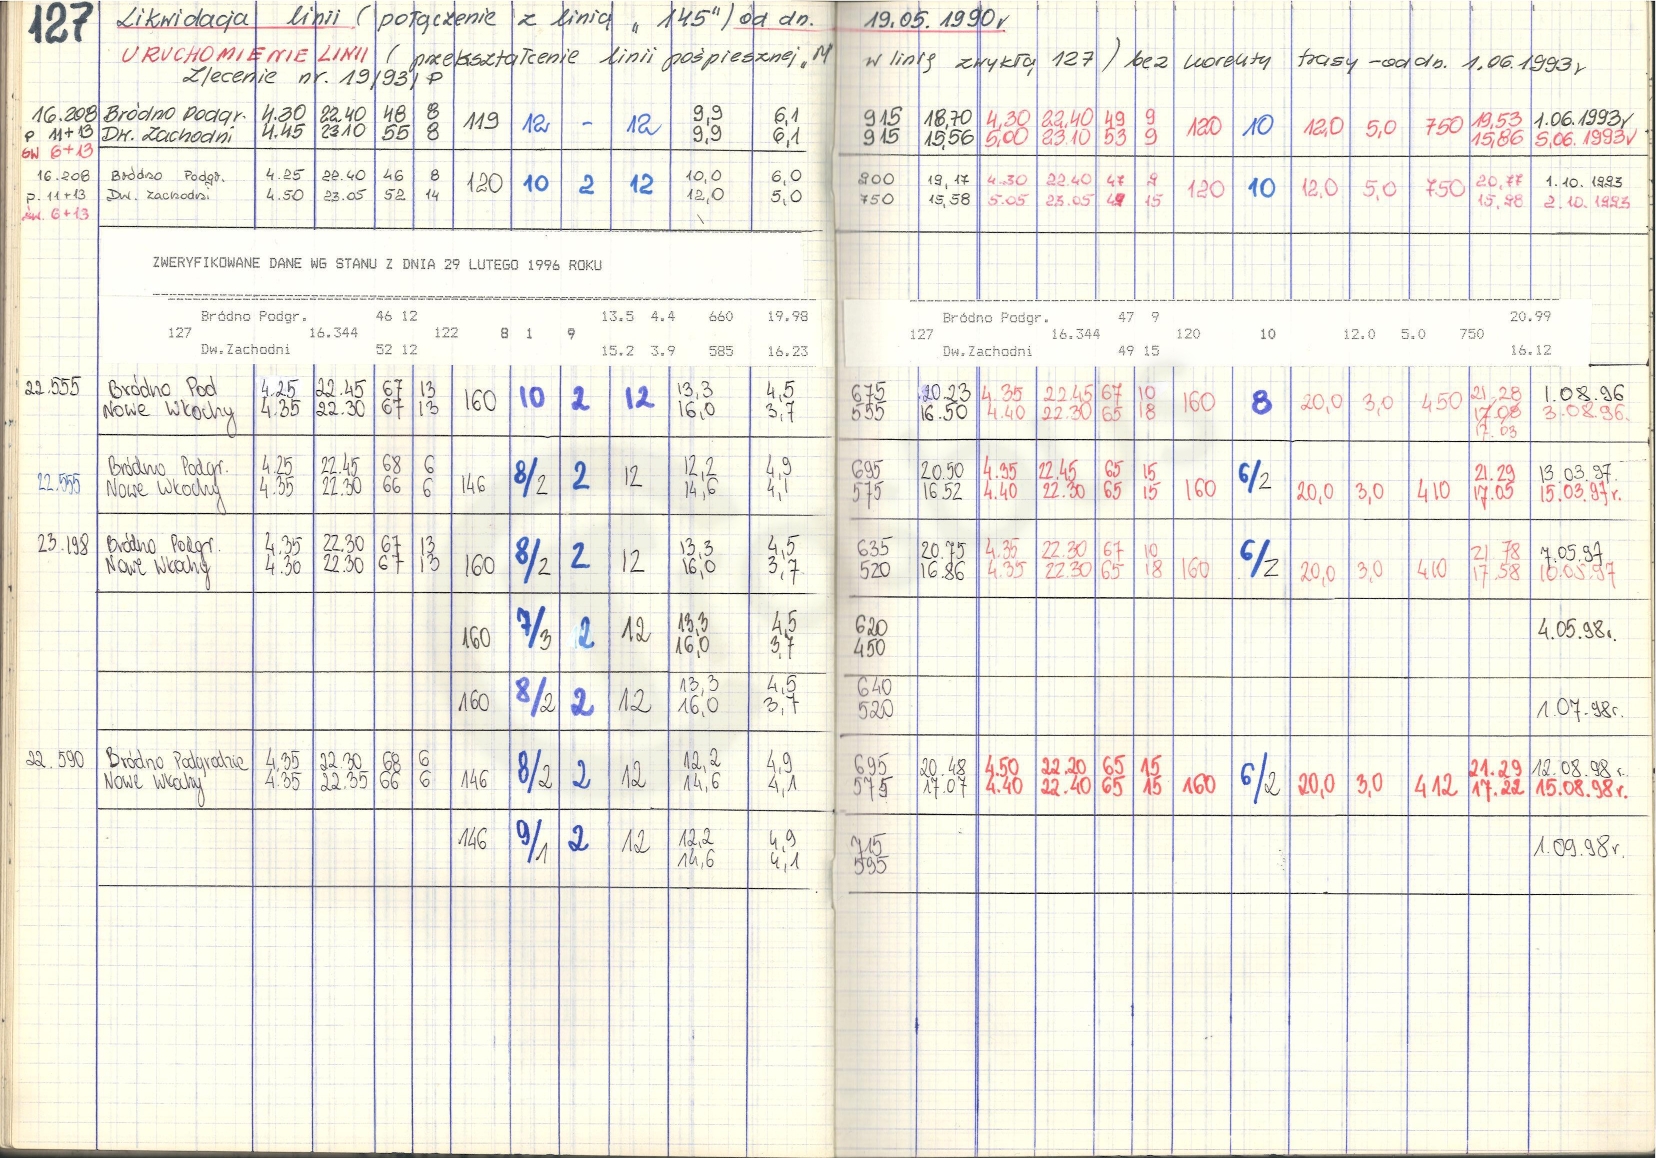 127 Likwidacja linii ( połączenie z linią „145") od dn. 19.05.1990r
URUCHOMIENIE LINII ( przekształcenie linii pośpiesznej „M w linię zwykłą 127 ) bez korekty trasy - od dn. 1.06.1993r
Zlecenie nr. 19/93/P
16.208 Bródno Podgr. 4.30 22.40 48 8 119 12 - 12 9,9 6,1 915 18,70 4,30 22,40 49 9 120 10 12,0 5,0 750 19,53 1.06.1993r
p 11+13 Dw. Zachodni 4.45 23.10 55 8 9,9 6,1 915 15,56 5,00 23.10 53 9 15,86 5,06.1993r
św 6+13
16.208 Bródno Podgr. 4.25 22.40 46 8 120 10 2 12 10,0 6,0 900 19,17 4.30 22.40 47 9 120 10 12,0 5,0 750 20,77 1.10.1993
p. 11+13 Dw. Zachodni 4.50 23.05 52 14 12,0 5,0 750 15,58 5.05 23.05 49 15 15,98 2.10.1993
św. 6+13
ZWERYFIKOWANE DANE WG STANU Z DNIA 29 LUTEGO 1996 ROKU
Bródno Podgr. 46 12 13.5 4.4 660 19.98 Bródno Podgr. 47 9 20.99
127 16.344 122 8 1 9 127 16.344 120 10 12.0 5.0 750
Dw.Zachodni 52 12 15.2 3.9 585 16.23 Dw.Zachodni 49 15 16.12
22.555 Bródno Pod 4.25 22.45 67 13 160 10 2 12 13,3 4,5 675 20.23 4.35 22.45 67 10 160 8 20,0 3,0 450 21,28 1.08.96
Nowe Włochy 4.35 22.30 67 13 16,0 3,7 555 16.50 4.40 22.30 65 18 17,08 3.08.96.
17.03
22.555 Bródno Podgr. 4.25 22.45 68 6 146 8/2 2 12 12,2 4,9 695 20.50 4.35 22.45 65 15 160 6/2 20,0 3,0 410 21.29 13.03.97.
Nowe Włochy 4.35 22.30 66 6 14,6 4,1 575 16.52 4.40 22.30 65 15 17.05 15.03.97r.
23.198 Bródno Podgr. 4.35 22.30 67 13 160 8/2 2 12 13,3 4,5 635 20.75 4.35 22.30 67 10 160 6/2 20,0 3,0 410 21.78 7.05.97
Nowe Włochy 4.30 22.30 67 13 16,0 3,7 520 16.86 4.35 22.30 65 18 17.58 10.05.97
160 7/3 2 12 13,3 4,5 620 4.05.98r.
16,0 3,7 450
160 8/2 2 12 13,3 4,5 640 1.07.98r.
16,0 3,7 520
22.590 Bródno Podgrodzie 4.35 22.30 68 6 146 8/2 2 12 12,2 4,9 695 20.48 4.50 22.20 65 15 160 6/2 20,0 3,0 412 21.29 12.08.98r.
Nowe Włochy 4.35 22.35 66 6 14,6 4,1 575 17.07 4.40 22.40 65 15 17.22 15.08.98r.
146 9/1 2 12 12,2 4,9 715 1.09.98r.
14,6 4,1 595